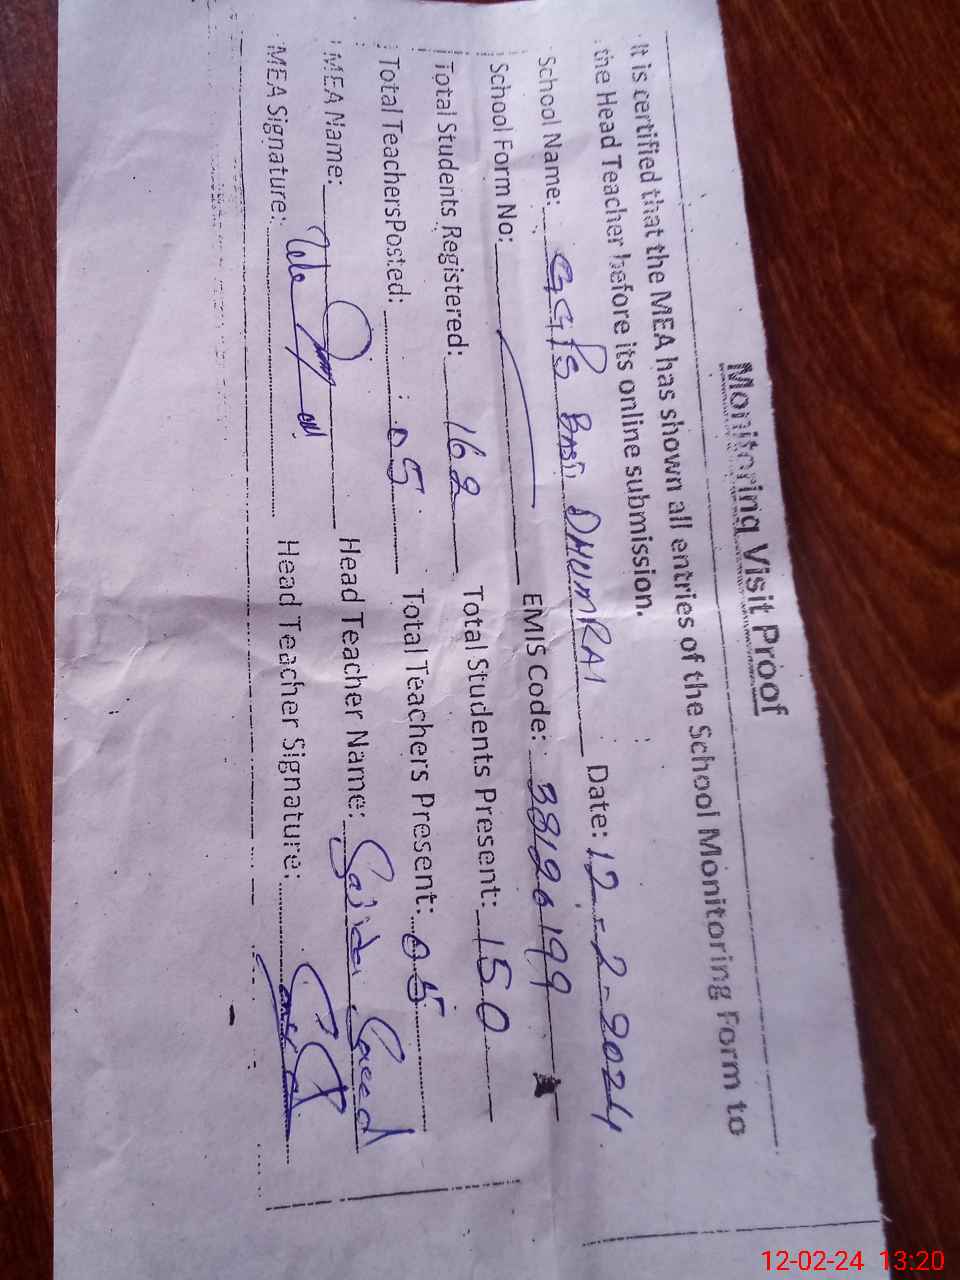 Monitoring Visit Proof
It is certified that the MEA has shown all entries of the School Monitoring Form to
the Head Teacher before its online submission.
School Name: GGPS Basti DHUMRAI Date: 12-2-2024
School Form No: EMIS Code: 38126199
Total Students Registered: 162 Total Students Present: 150
Total Teachers Posted: 05 Total Teachers Present: 05
MEA Name: Head Teacher Name: Sajida Saeed
MEA Signature: Head Teacher Signature:
12-02-24 13:20